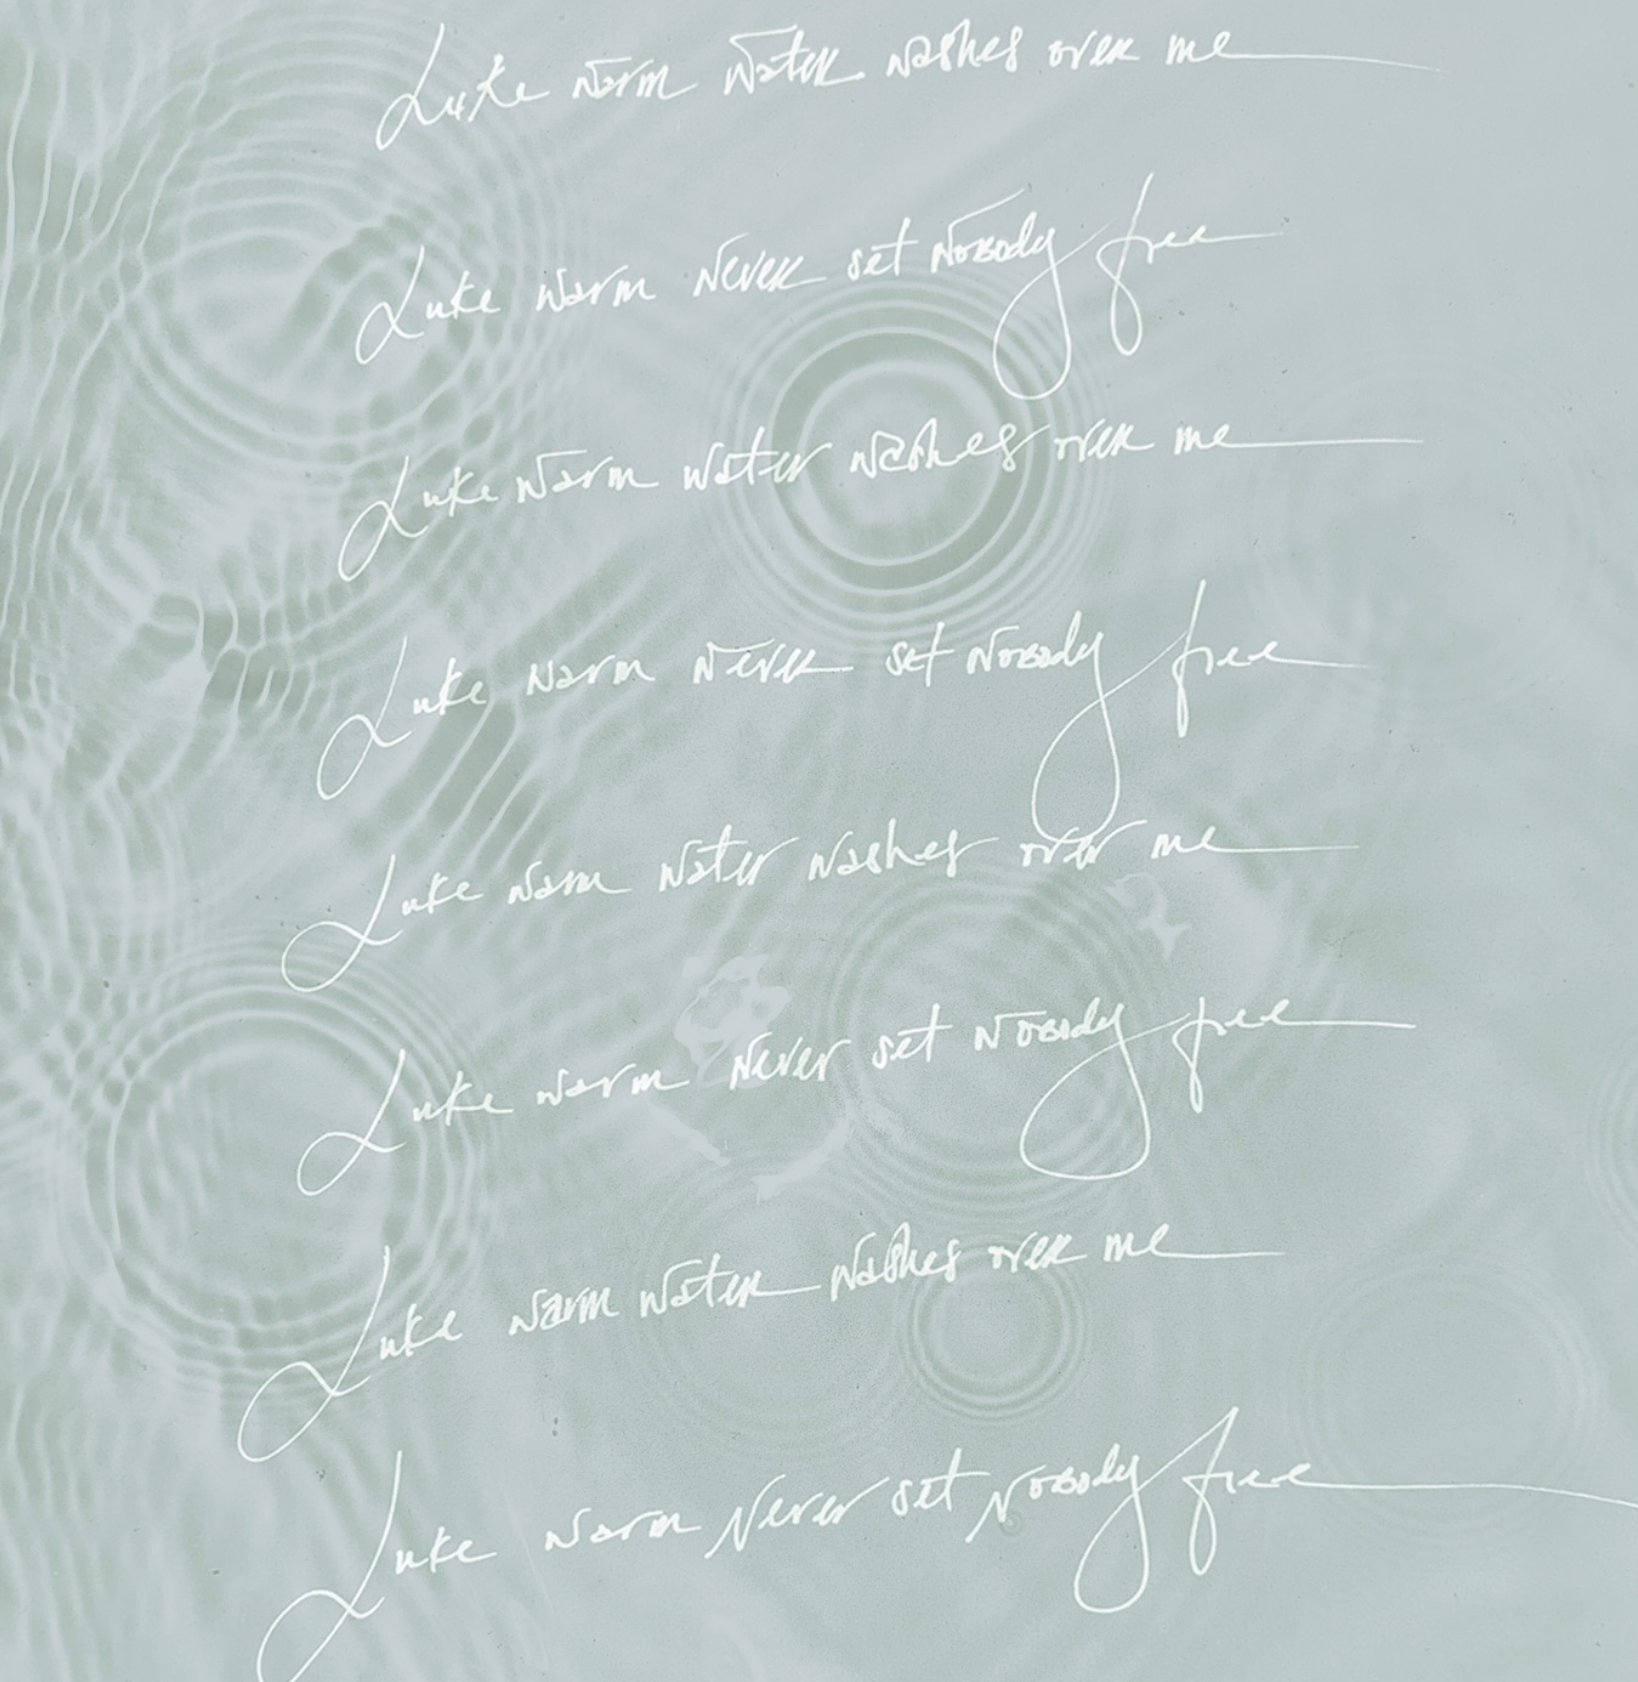 Luke warm water washes over me
Luke warm Never set Nobody free
Luke warm water washes over me
Luke warm Never set Nobody free
Luke warm water washes over me
Luke warm Never set Nobody free
Luke warm water washes over me
Luke warm Never set Nobody free